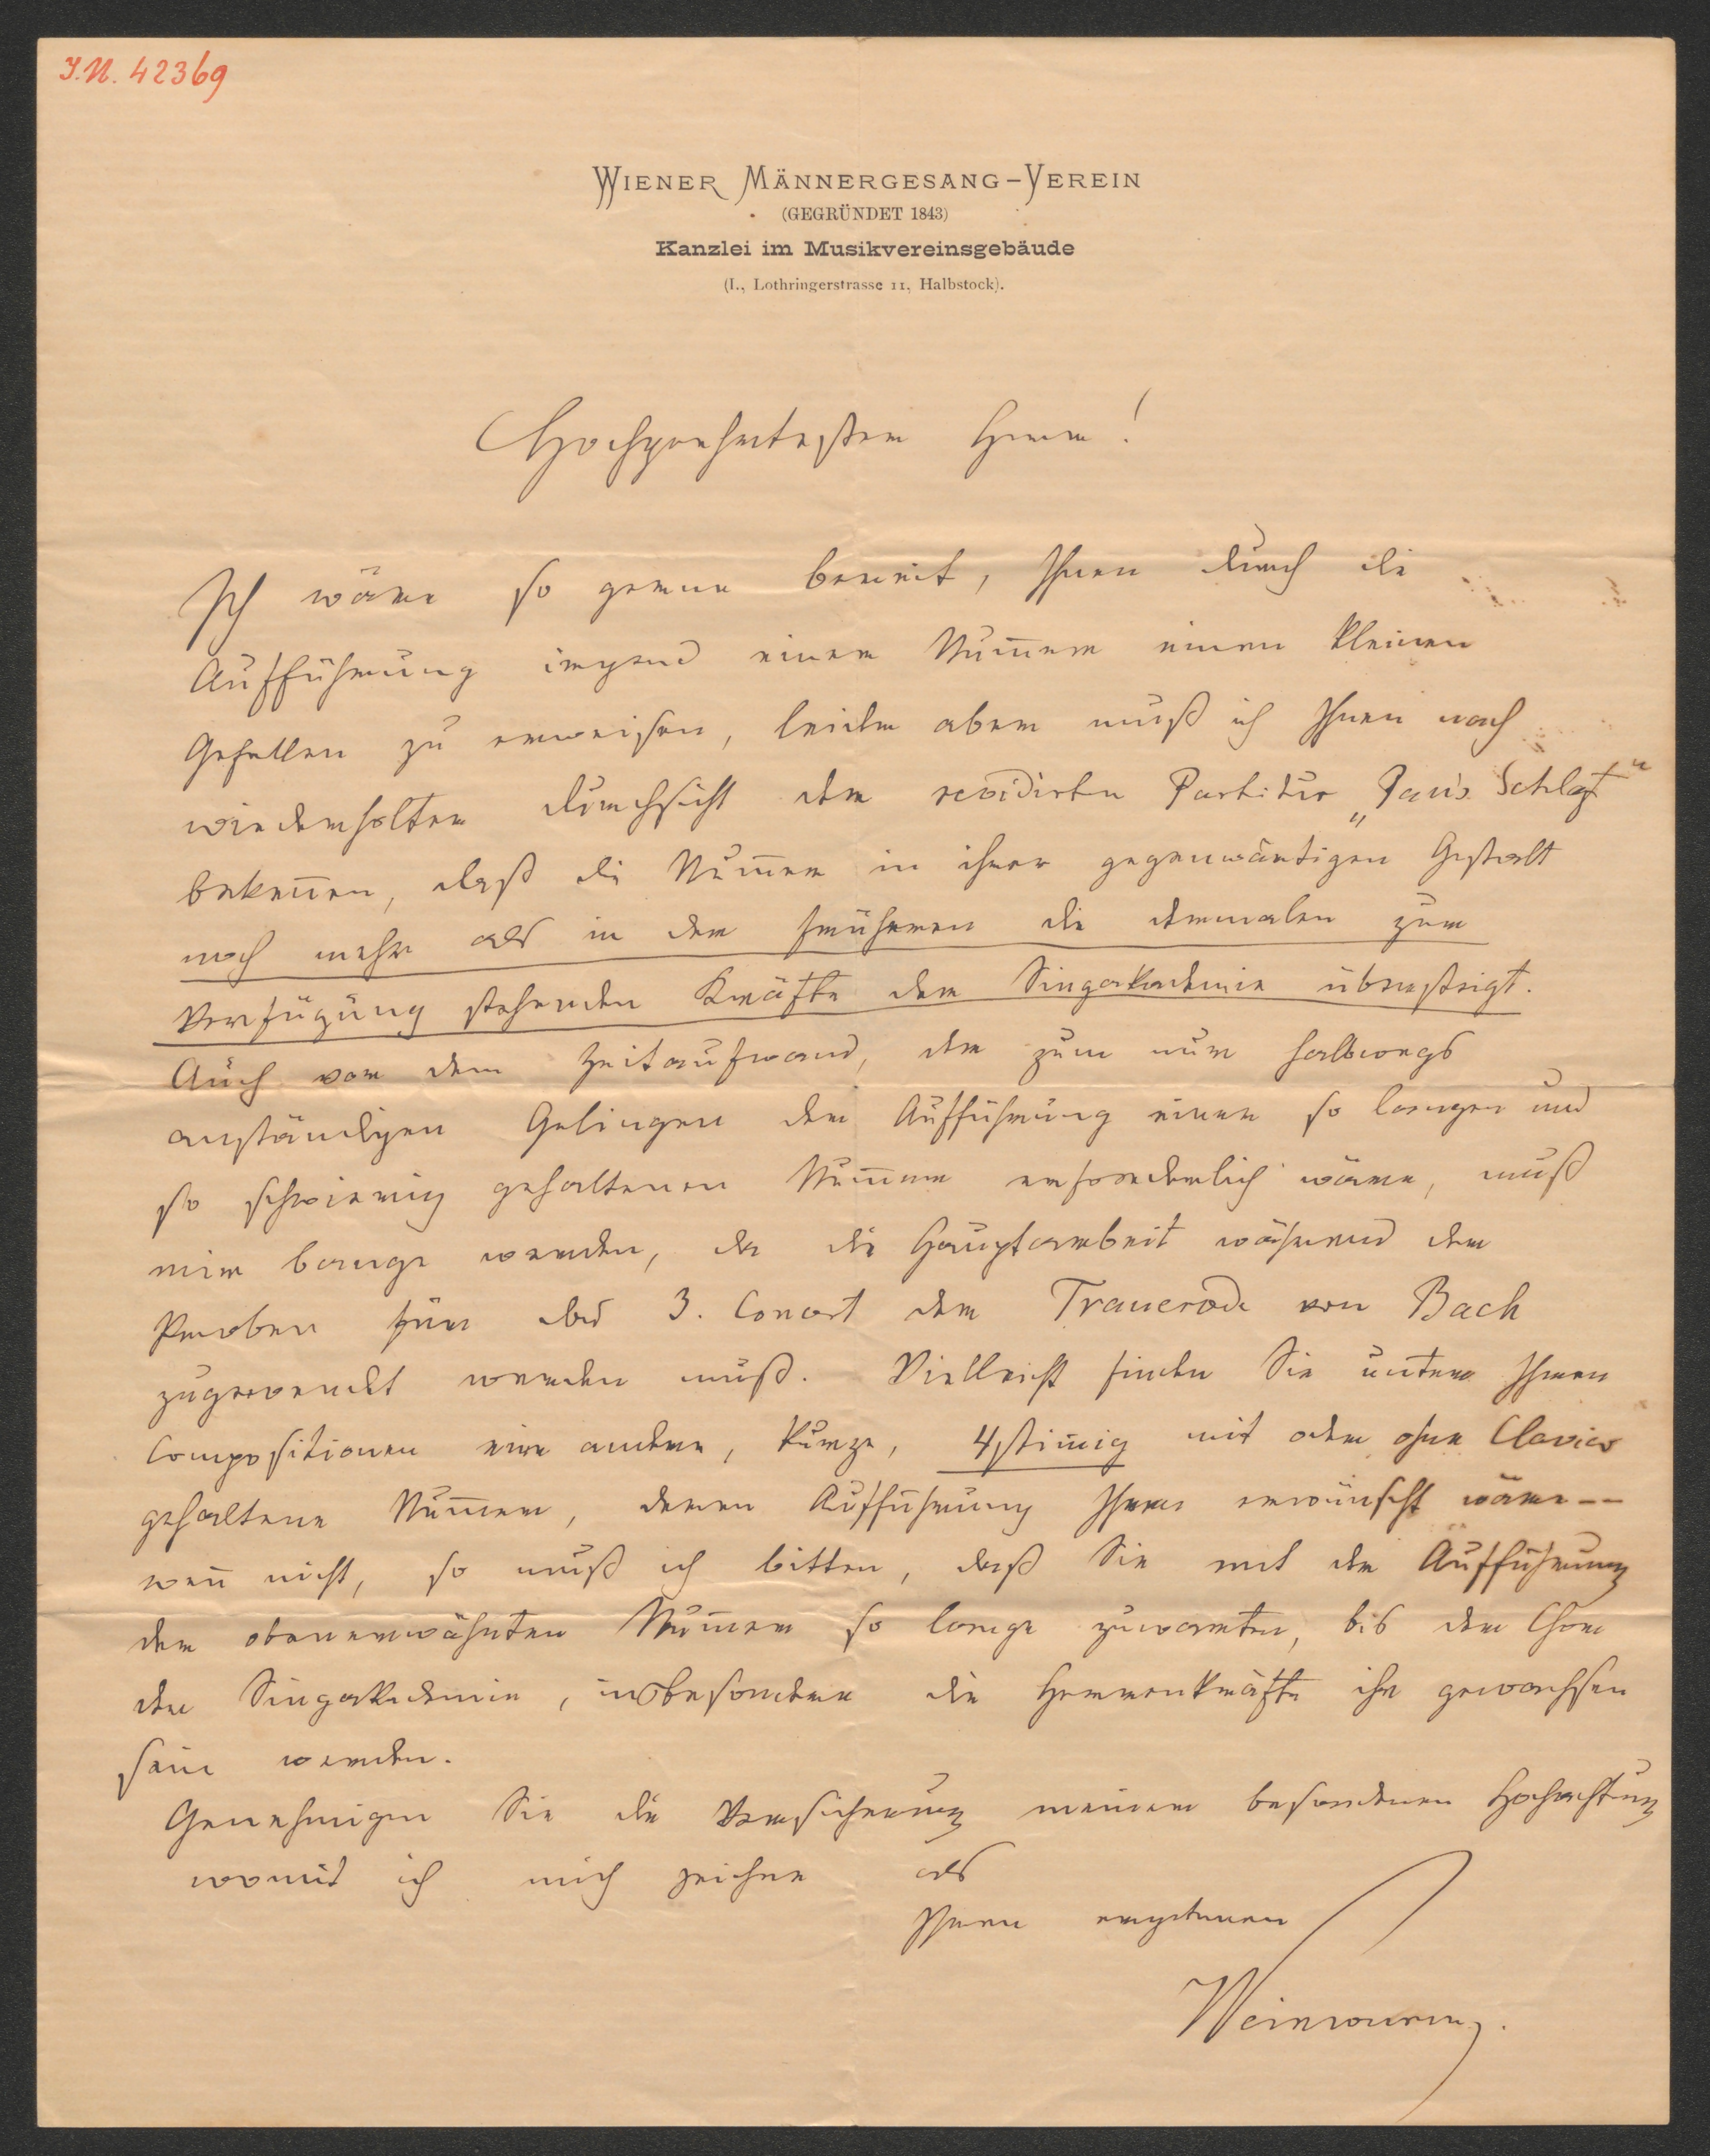 I.N. 42369
WIENER MÄNNERGESANG-VEREIN
(GEGRÜNDET 1843)
Kanzlei im Musikvereinsgebäude
(I., Lothringerstrasse 11, Halbstock).
Hochgeehrtester Herr!
Ich wäre so gerne bereit, Ihnen durch die
Aufführung irgend einer Num̅er einen kleinen
Gefallen zu erweisen, leider aber muß ich Ihnen nach
wiederholter Durchsicht der revidirten Partitur „ Schlaf"
beken̅en, daß die Num̅er in ihrer gegenwärtigen Gestalt
noch mehr als in der früheren die dermalen zur
Verfügung stehenden Kräfte der Singakademie übersteigt.
Auch vor dem Zeitaufwand, der zum nur halbwegs
anständigen Gelingen der Aufführung einer so langen und
so schwierig gehaltenen Num̅er erforderlich wäre, muß
mir bange werden, da die Hauptarbeit während der
Proben für das 3. Concert der Trauerode von Bach
zugewendet werden muß. Vielleicht finden Sie unter Ihren
Compositionen eine andere, kurze, 4stim̅ig mit oder ohne Clavier
gehaltene Num̅er, deren Aufführung Ihnen erwünscht wäre --
wen̅ nicht, so muß ich bitten, daß Sie mit der Aufführung
der obenerwähnten Num̅er so lange zuwarten, bis der Chor
der Singakademie, insbesondere die Herrenkräfte ihr gewachsen
sein werden.
Genehmigen Sie die Versicherung meiner besonderen Hochachtung
womit ich mich zeichne als
Ihren ergebenen
Weinwurm.